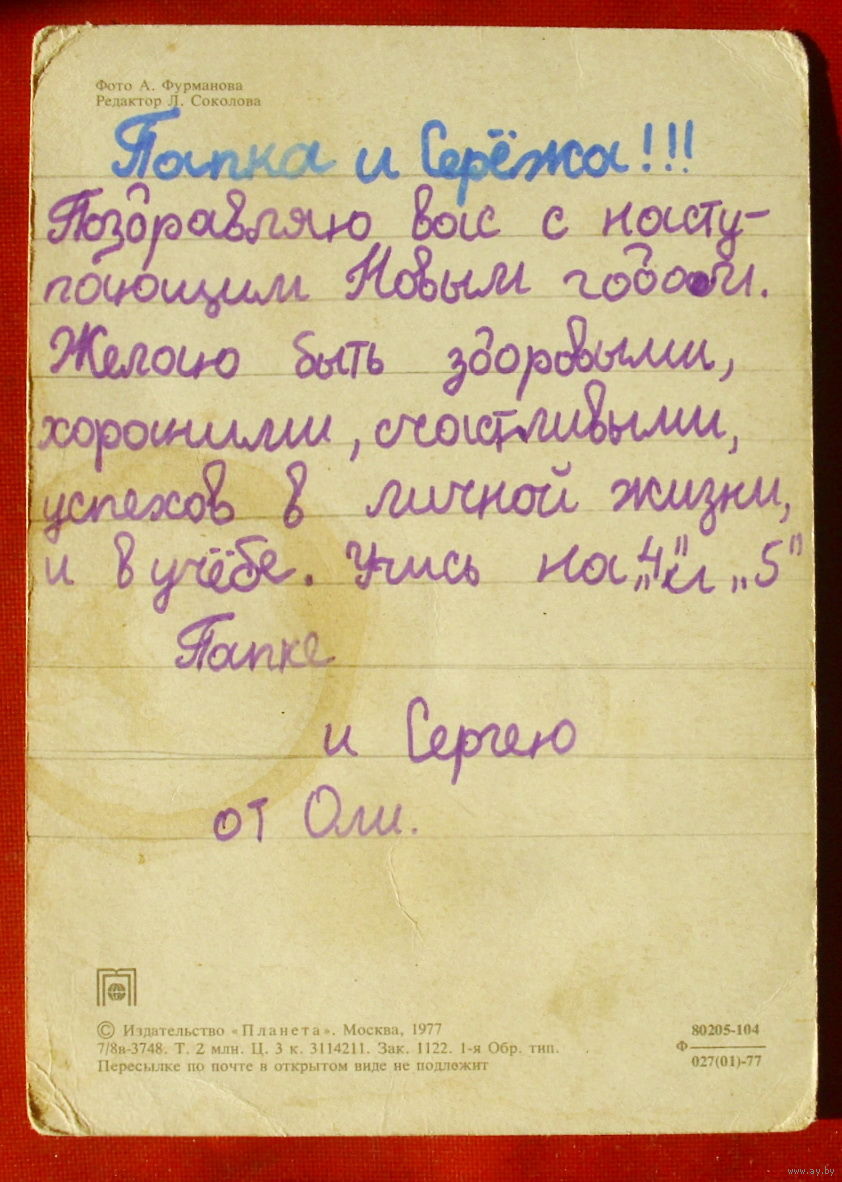 Фото А. Фурманова
Редактор Л. Соколова
Папка и Серёжа!!!
Поздравляю вас с насту-
пающим Новым годом.
Желаю быть здоровыми,
хорошими, счастливыми,
успехов в личной жизни,
и в учёбе. Учись на „4" и „5"
Папке
и Сергею
от Оли.
© Издательство «Планета». Москва, 1977
7/8в-3748. Т. 2 млн. Ц. 3 к. 3114211. Зак. 1122. 1-я Обр. тип.
Пересылке по почте в открытом виде не подлежит
80205-104
Ф
027(01)-77
www.ay.by